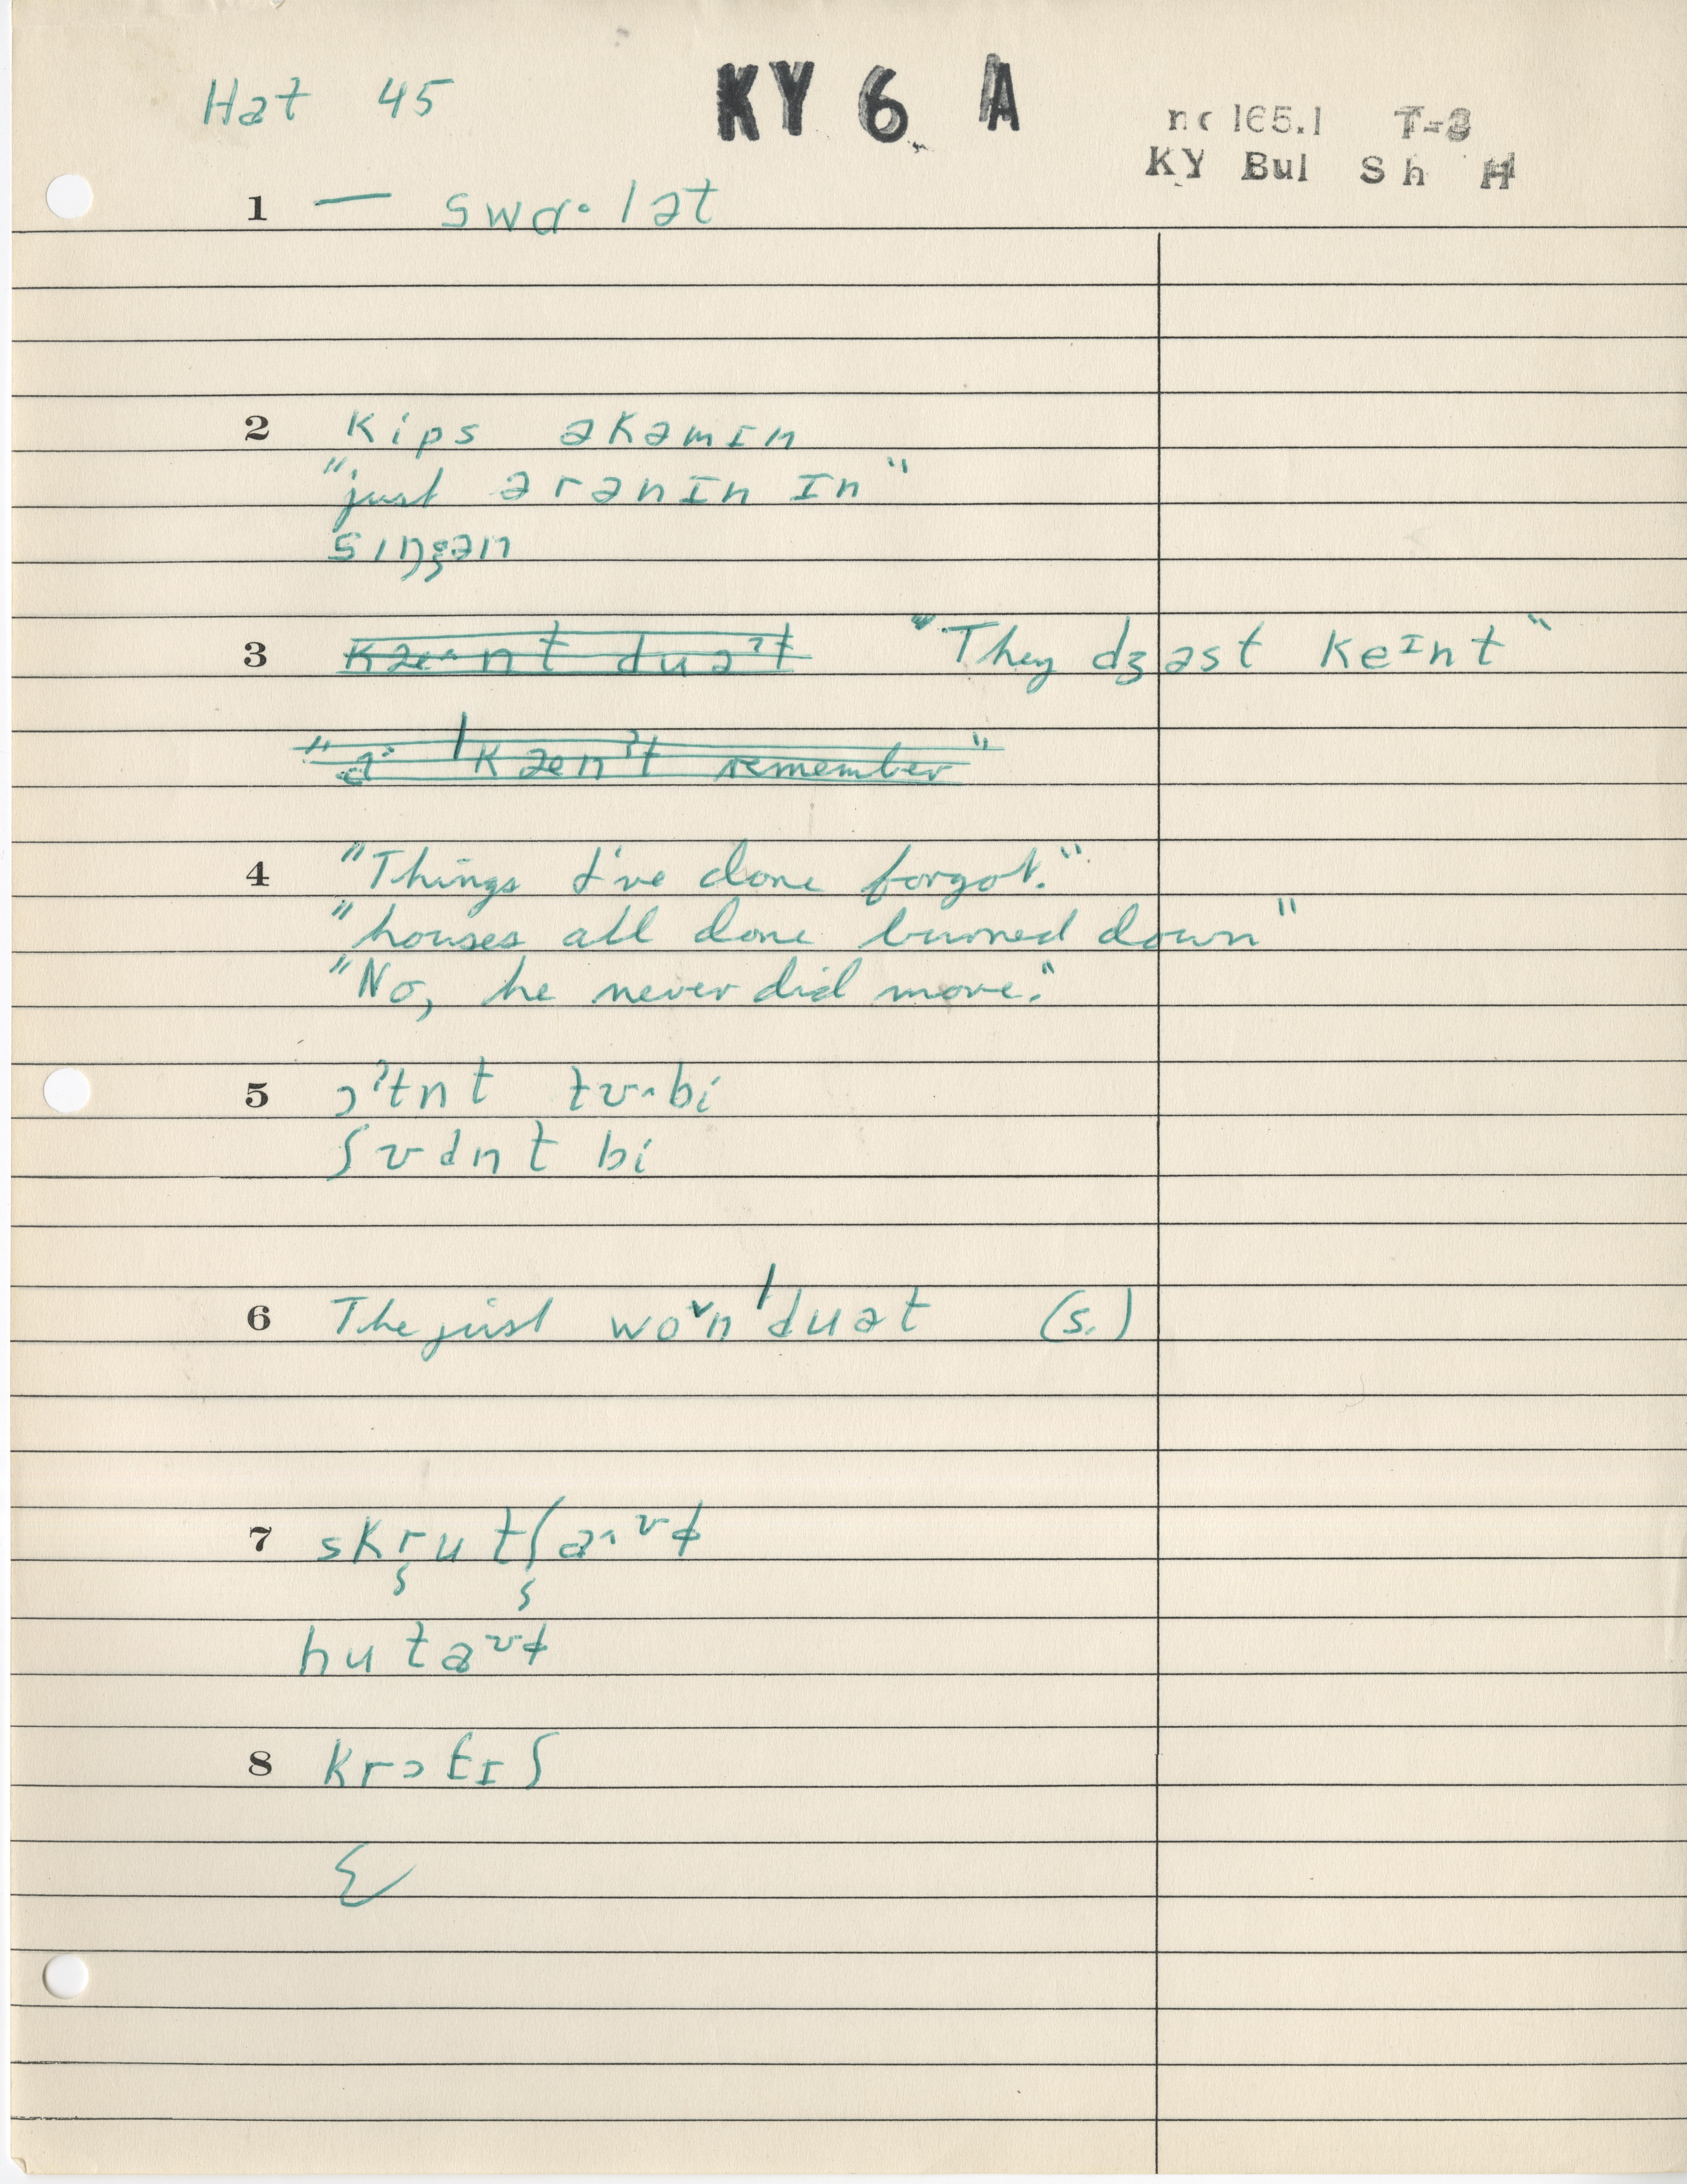 Hat 45
KY 6 A
nc 165.1 T-3
KY Bul Sh H
1 — swɑ·lət
2 kips əkəmɪn
"just ərənɪn ɪn"
sɪŋən
3 kæ·nt duəˀt "They dʒəst keɪnt"
kæenˀt remember"
4 "Things I've done forgot."
"houses all done burned down"
"No, he never did move."
5 ɔˀtnt tʊ·bi
ʃʊdnt bi
6 The just woʊn ˈduət (s.)
7 skrutʃaʊt
hutaʊt
8 krɔtɪʃ